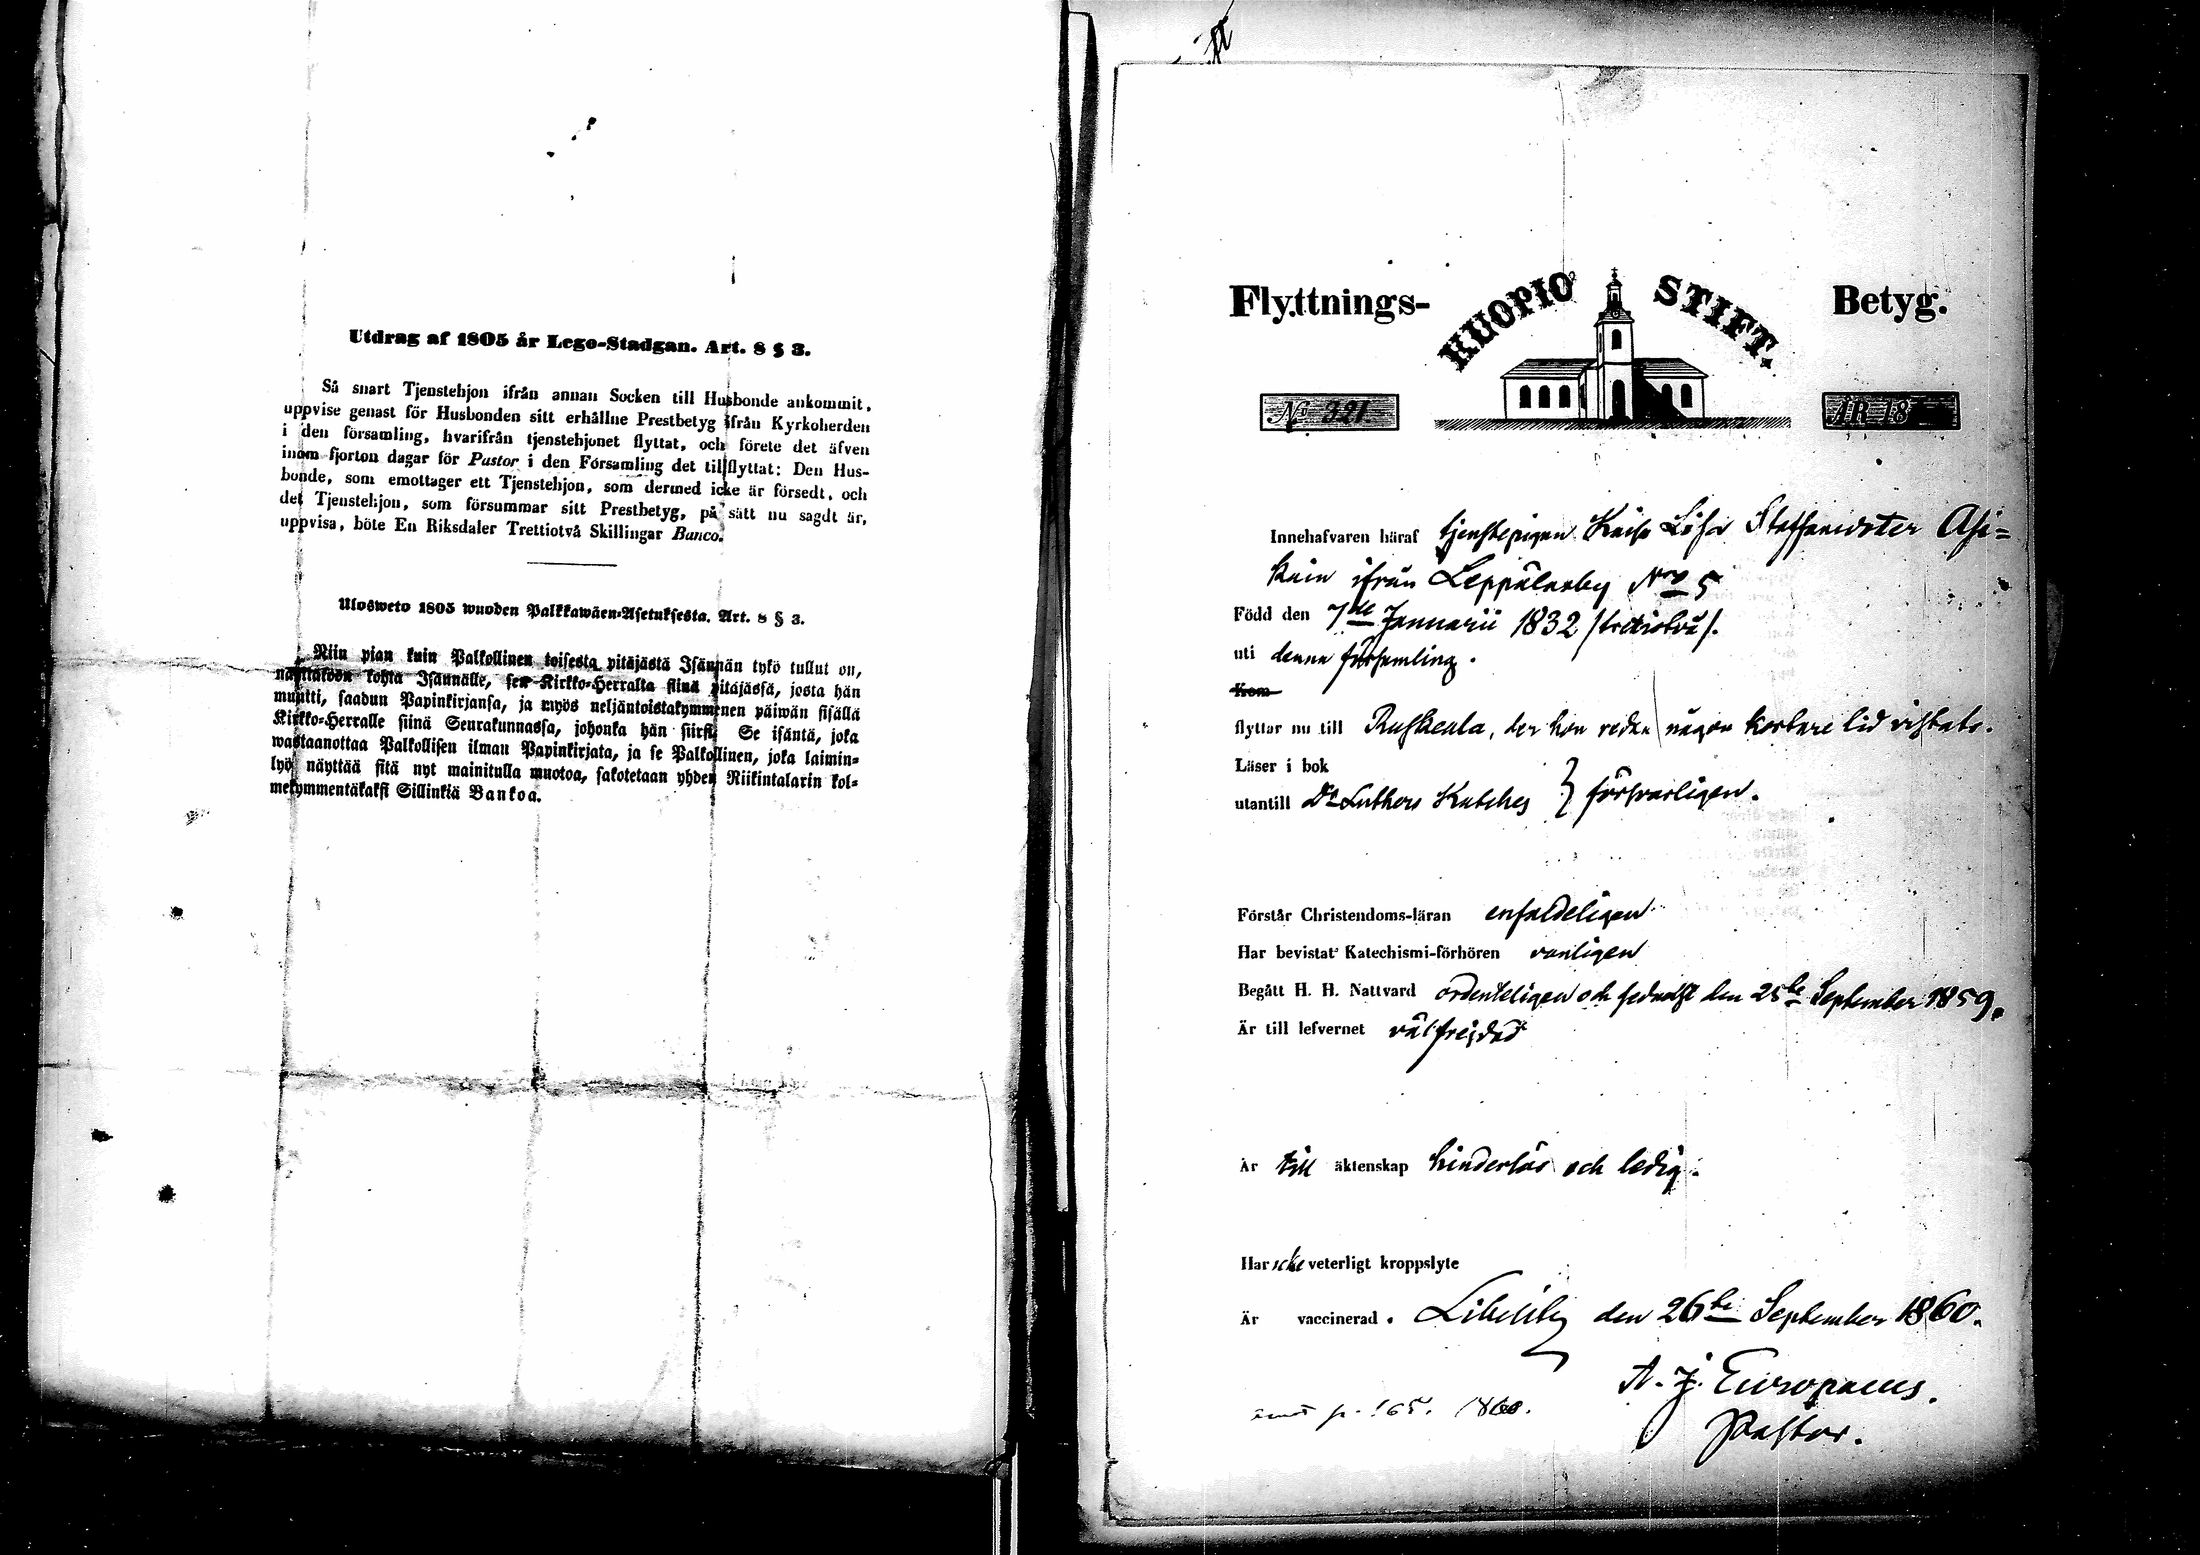 Utdrag af 1805 år Lego-Stadgan. Art. 8 § 3.
Så snart Tjenstehjon ifrån annan Socken till Husbonde ankommit,
uppvise genast för Husbonden sitt erhållne Prestbetyg ifrån Kyrkoherden
i den församling, hvarifrån tjenstehjonet flyttat, och förete det äfven
inom fjorton dagar för Pastor i den Församling det tillflyttat: Den Hus-
bonde, som emottager ett Tjenstehjon, som dermed icke är försedt, och
det Tjenstehjon, som försummar sitt Prestbetyg, på sätt nu sagdt är,
uppvisa, böte En Riksdaler Trettiotvå Skillingar Banco.
Ulosweto 1805 wuoden Palkkawäen-Asetuksesta. Art. 8 § 3.
Niin pian kuin Palkollinen toisesta pitäjästä Isännän tykö tullut on,
näyttäköön kohta Isännälle, sen Kirkko-Herralta siinä pitäjässä, josta hän
muutti, saadun Papinkirjansa, ja myös neljäntoistakymmenen päiwän sisällä
Kirkko-Herralle siinä Seurakunnassa, johonka hän siirsi. Se isäntä, joka
wastaanottaa Palkollisen ilman Papinkirjata, ja se Palkollinen, joka laimin-
lyö näyttää sitä nyt mainitulla muotoa, sakotetaan yhden Riikintalarin kol-
mekymmentäkaksi Sillinkiä Bankoa.
Flyttnings- KUOPIO STIFT. Betyg.
No 321. ÅR 18
Innehafvaren häraf tjenstepigan Kaisa Lisa Staffansdotter Asi=
kain ifrån Leppälaxby No 5
Född den 7de Januarii 1832 /trettiotvå/.
uti denna församling.
Kom
flyttar nu till Ruskeala, der hon redan någon kortare tid vistats.
Läser i bok
utantill Dr Luthers Katches } försvarligen.
Förstår Christendoms-läran enfaldeligen
Har bevistat Katechismi-förhören vanligen
Begått H. H. Nattvard ordenteligen och sednast den 25te September 1859.
Är till lefvernet välfrejdad
Är till äktenskap hinderlös och ledig.
Har icke veterligt kroppslyte
Är vaccinerad. Libelits den 26te September 1860.
A. J. Europaeus.
Pastor.
p. 165. 1860.